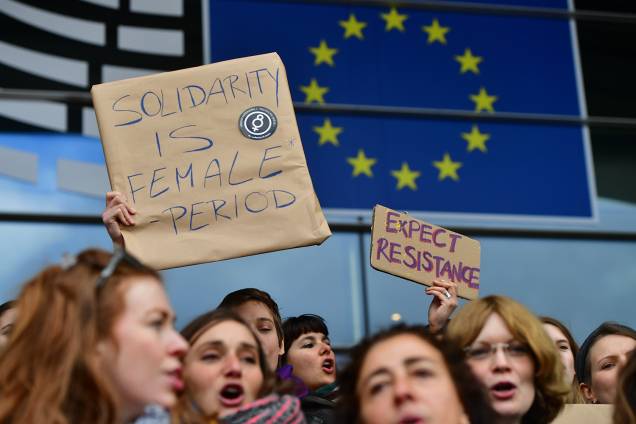 SOLIDARITY
IS
FEMALE*
-PERIOD
EXPECT
RESISTANCE